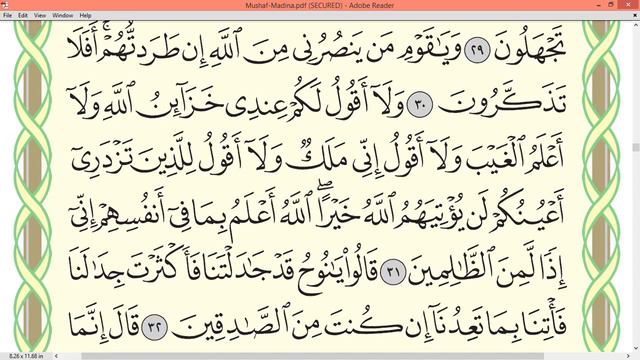 Mushaf-Madina.pdf (SECURED) - Adobe Reader
File Edit View Window Help
تَجْهَلُونَ ٢٩ وَيَٰقَوْمِ مَن يَنصُرُنِى مِنَ ٱللَّهِ إِن طَرَدتُّهُمْ ۚ أَفَلَا
تَذَكَّرُونَ ٣٠ وَلَآ أَقُولُ لَكُمْ عِندِى خَزَآئِنُ ٱللَّهِ وَلَآ
أَعْلَمُ ٱلْغَيْبَ وَلَآ أَقُولُ إِنِّى مَلَكٌ وَلَآ أَقُولُ لِلَّذِينَ تَزْدَرِىٓ
أَعْيُنُكُمْ لَن يُؤْتِيَهُمُ ٱللَّهُ خَيْرًا ۖ ٱللَّهُ أَعْلَمُ بِمَا فِىٓ أَنفُسِهِمْ إِنِّىٓ
إِذًا لَّمِنَ ٱلظَّٰلِمِينَ ٣١ قَالُوا۟ يَٰنُوحُ قَدْ جَٰدَلْتَنَا فَأَكْثَرْتَ جِدَٰلَنَا
فَأْتِنَا بِمَا تَعِدُنَآ إِن كُنتَ مِنَ ٱلصَّٰدِقِينَ ٣٢ قَالَ إِنَّمَا
8.26 x 11.68 in